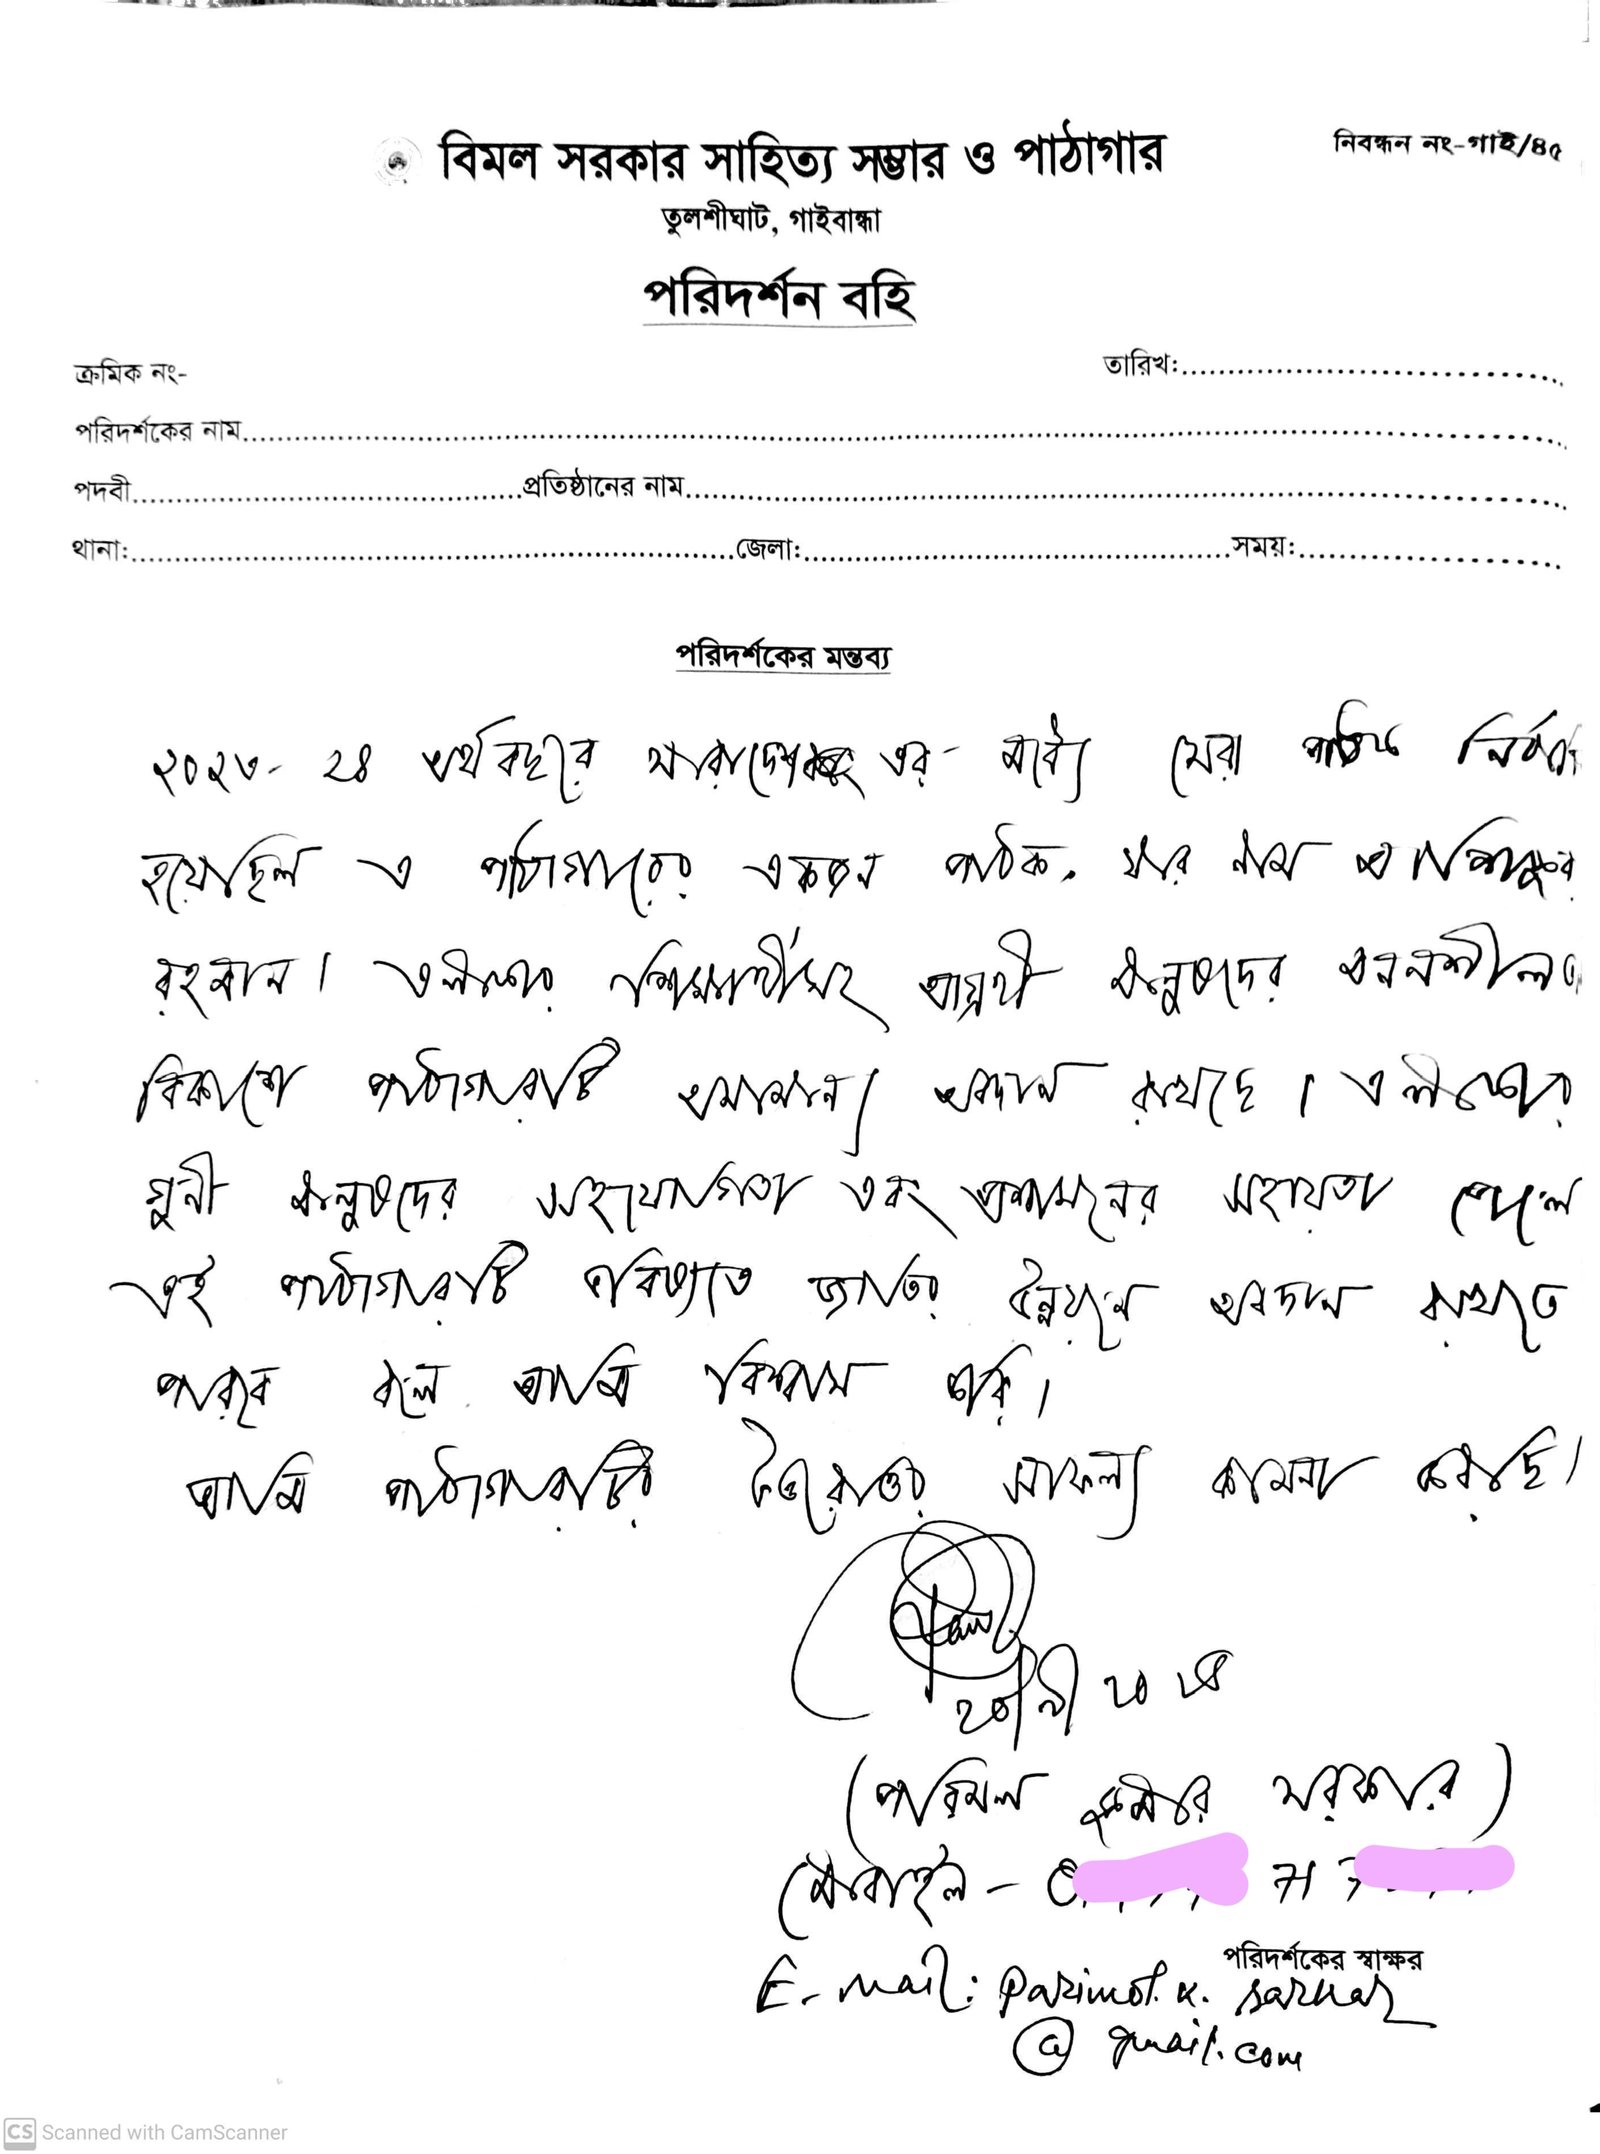 বিমল সরকার সাহিত্য সম্ভার ও পাঠাগার
নিবন্ধন নং-গাই/৪৫
তুলশীঘাট, গাইবান্ধা
পরিদর্শন বহি
ক্রমিক নং-
তারিখ:
পরিদর্শকের নাম
পদবী প্রতিষ্ঠানের নাম
থানা: জেলা: সময়:
পরিদর্শকের মন্তব্য
২০২৩-২৪ অর্থবছরে সারাদেশ এর মধ্যে সেরা পাঠক
হয়েছিল এ পাঠাগারের একজন পাঠক, যার নাম
রহমান। এলাকার শিক্ষার্থীসহ আগ্রহী মানুষদের মননশীলতা
বিকাশে পাঠাগারটি অসামান্য অবদান রাখছে। এলাকার
গুনী মানুষদের সহযোগিতা এবং প্রশাসনের সহায়তা পেলে
এই পাঠাগারটি ভবিষ্যতে জাতির উন্নয়নে অবদান রাখতে
পারবে বলে আমি বিশ্বাস করি।
আমি পাঠাগারটির উত্তরোত্তর সাফল্য কামনা করছি।
(পরিমল কুমার সরকার)
মোবাইল - 0 71
পরিদর্শকের স্বাক্ষর
E-mail: Parimol.k.sarkar
@gmail.com
CS Scanned with CamScanner